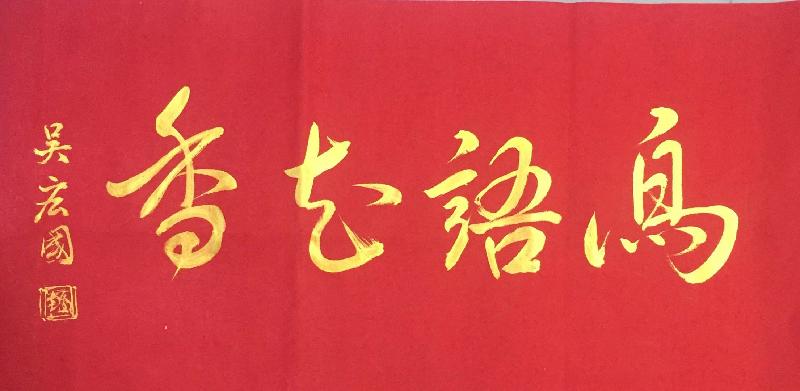 鳥語花香
吳宏國